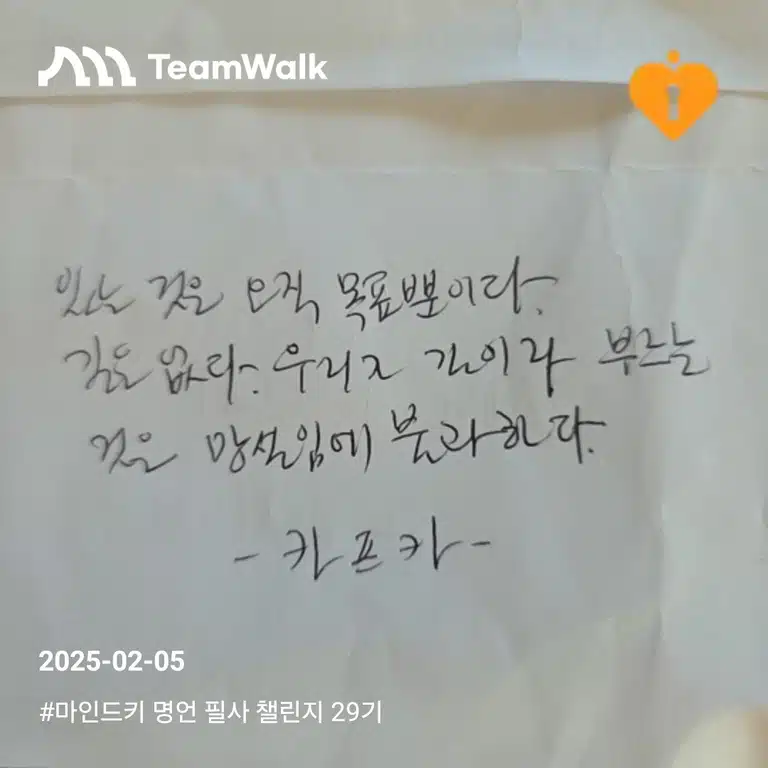 TeamWalk
있는 것은 오직 목표뿐이다.
길은 없다. 우리가 길이라 부르는
것은 망설임에 불과하다.
- 카프카 -
2025-02-05
#마인드키 명언 필사 챌린지 29기